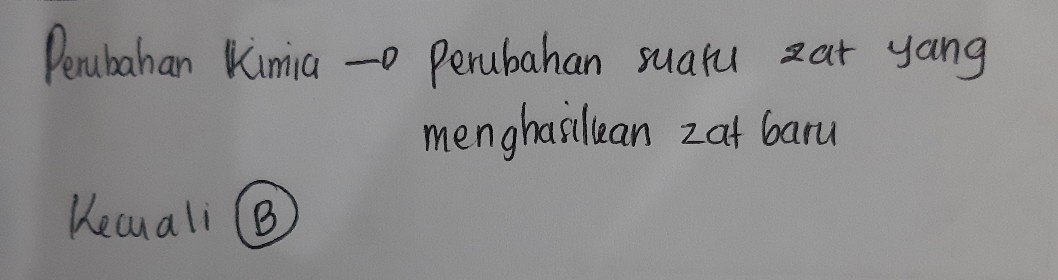 Perubahan Kimia → Perubahan suatu zat yang
menghasilkan zat baru
Kecuali B